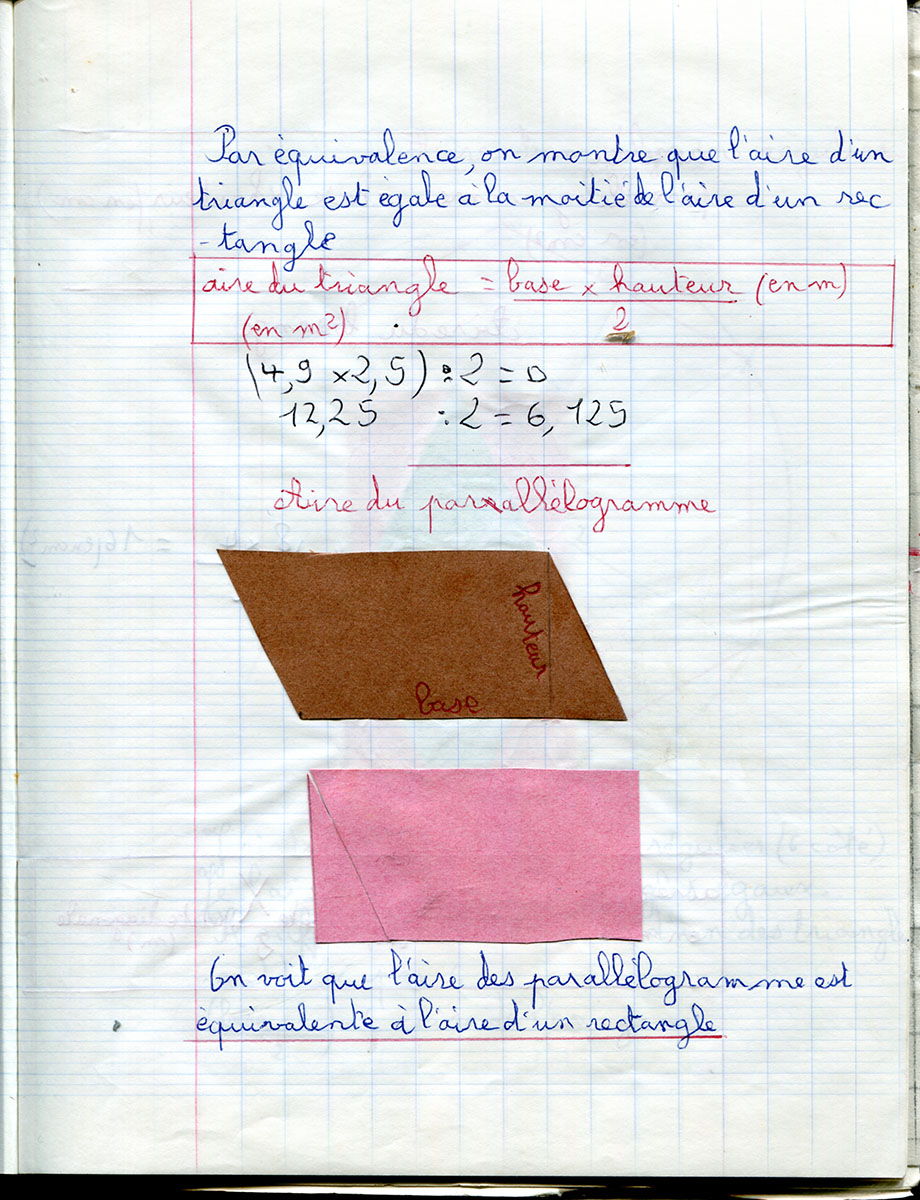 Par équivalence, on montre que l'aire d'un
triangle est égale à la moitié de l'aire d'un rec
-tangle
aire du triangle = base x hauteur (en m)
(en m²) 2
(4,9 x 2,5) : 2 = 0
12,25 : 2 = 6,125
Aire du parallélogramme
hauteur
base
On voit que l'aire des parallélogramme est
équivalente à l'aire d'un rectangle